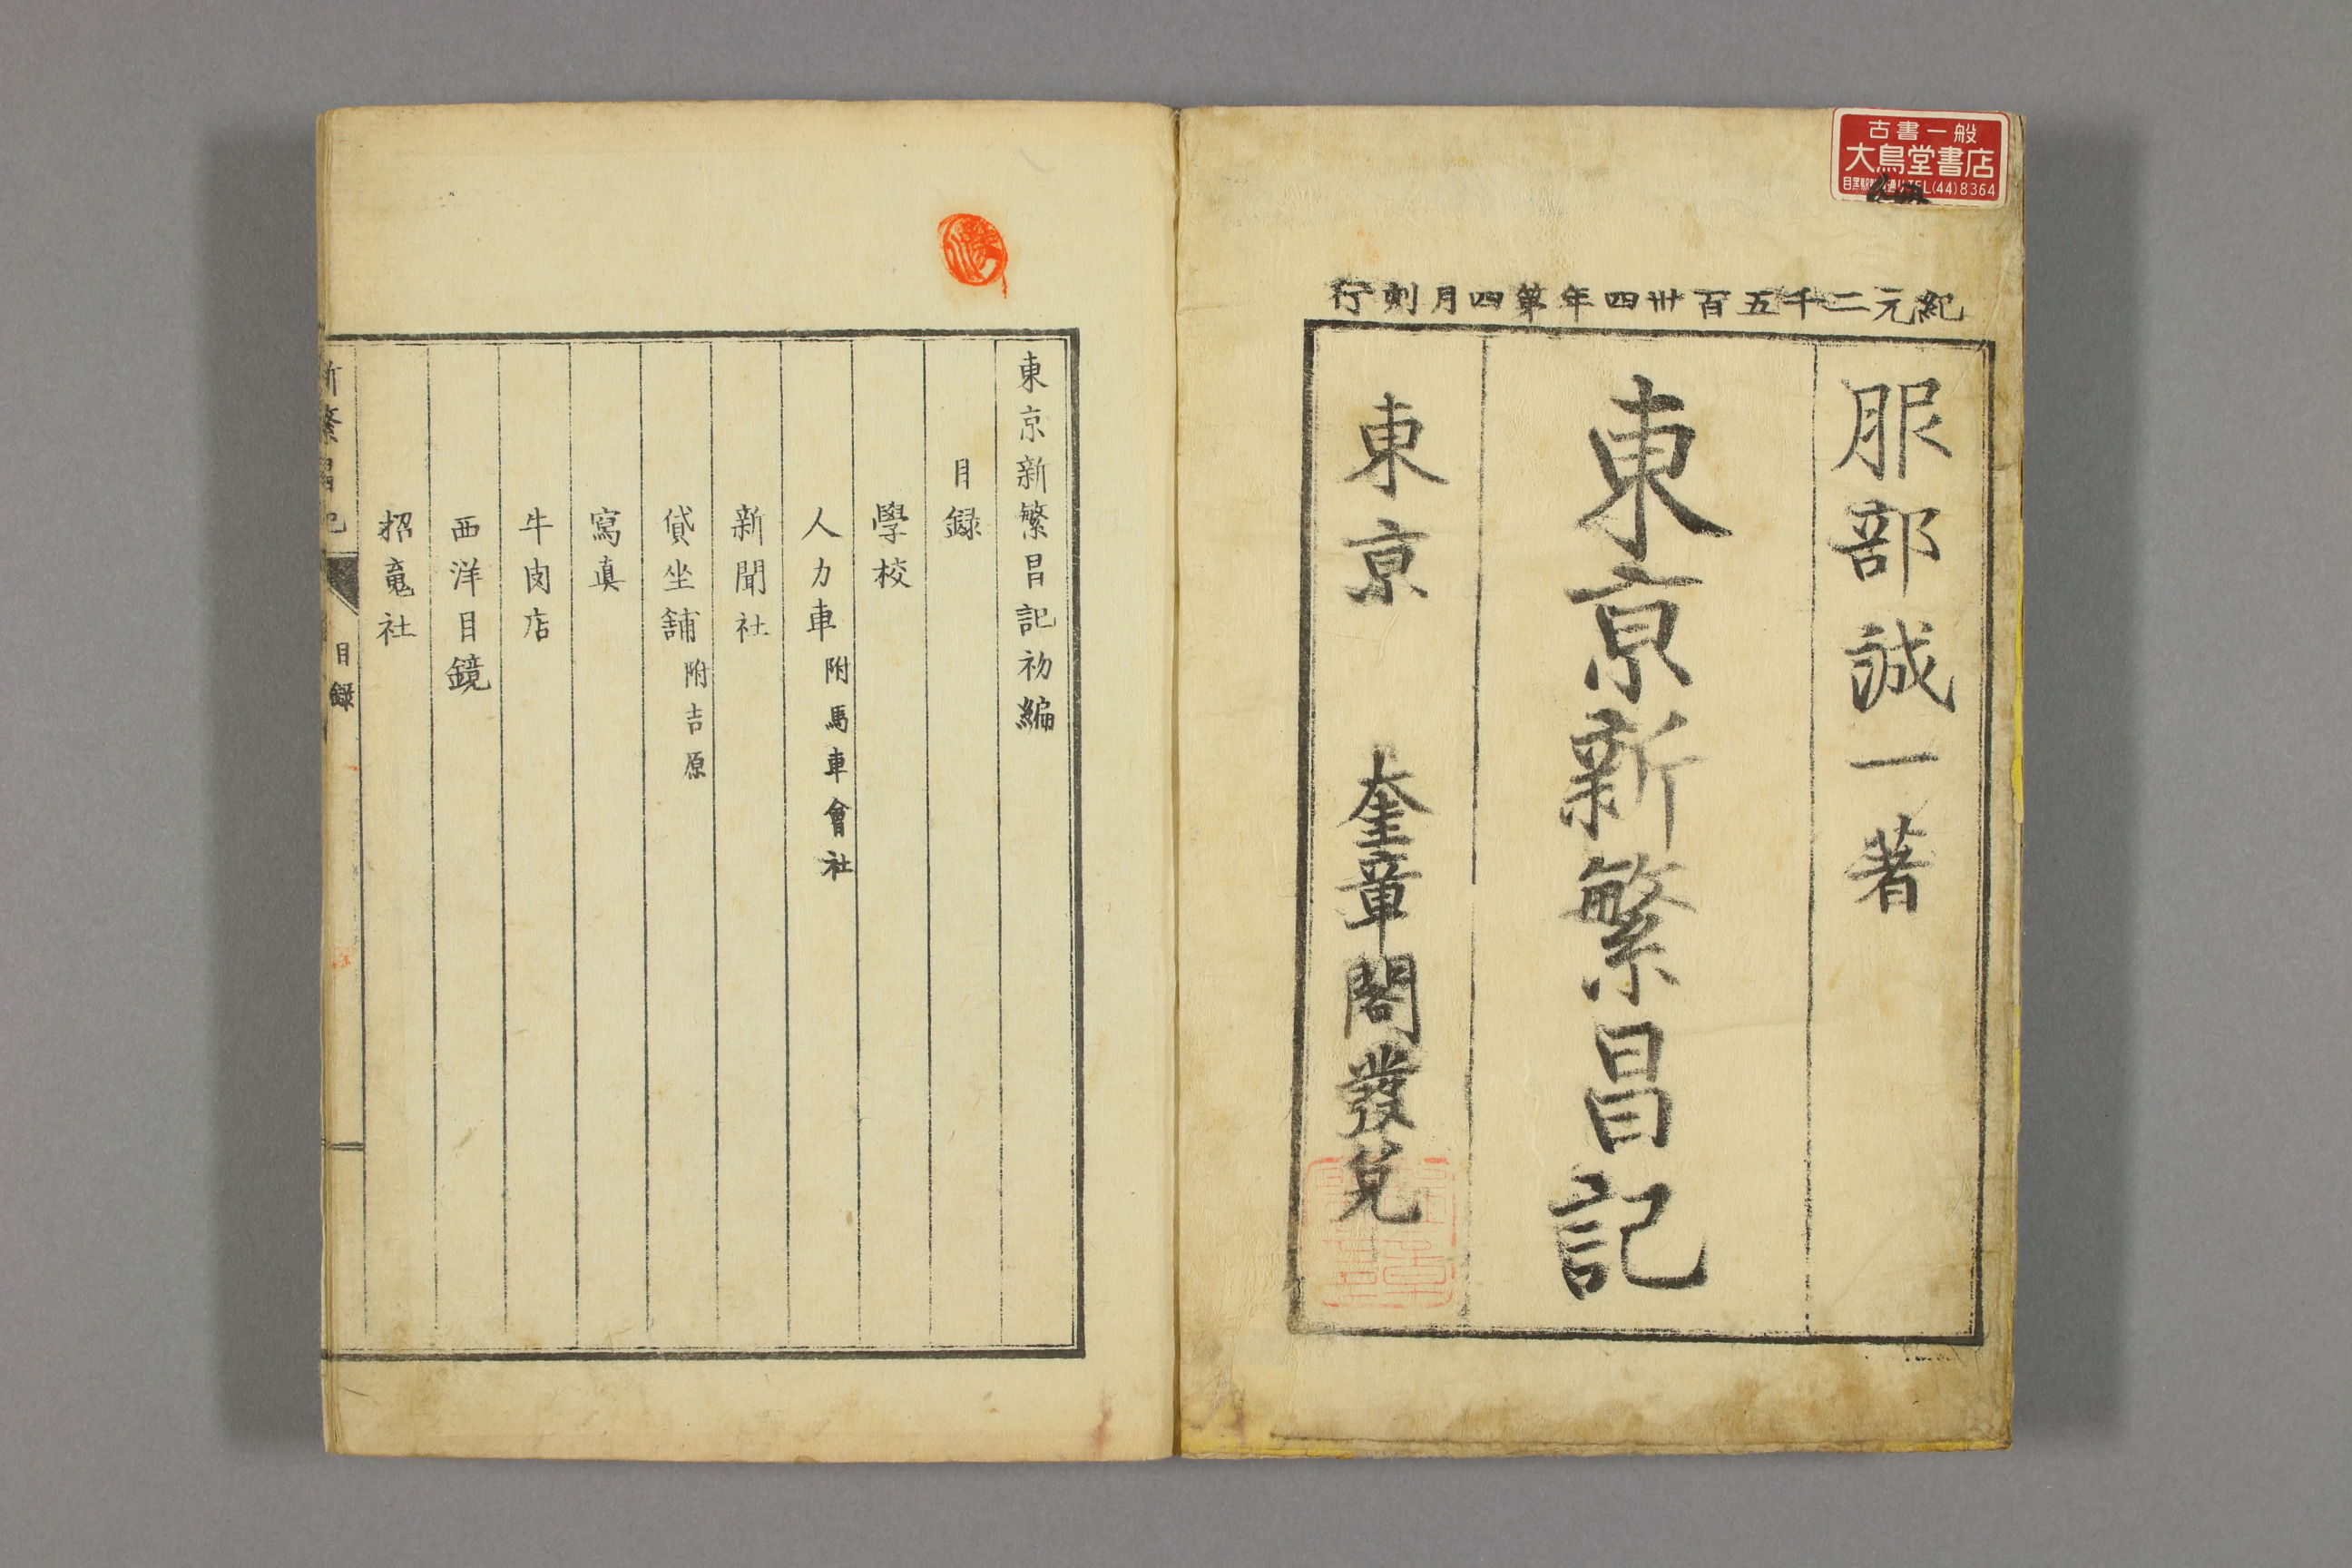 古書一般
大鳥堂書店
TEL(44)8364
紀元二千五百卅四年第四月刻行
服部誠一著
東京新繁昌記
東京 奎章閣發兌
東京新繁昌記初編
目録
學校
人力車 附馬車會社
新聞社
貸坐舗 附吉原
寫眞
牛肉店
西洋目鏡
招魂社
新繁昌記 目録